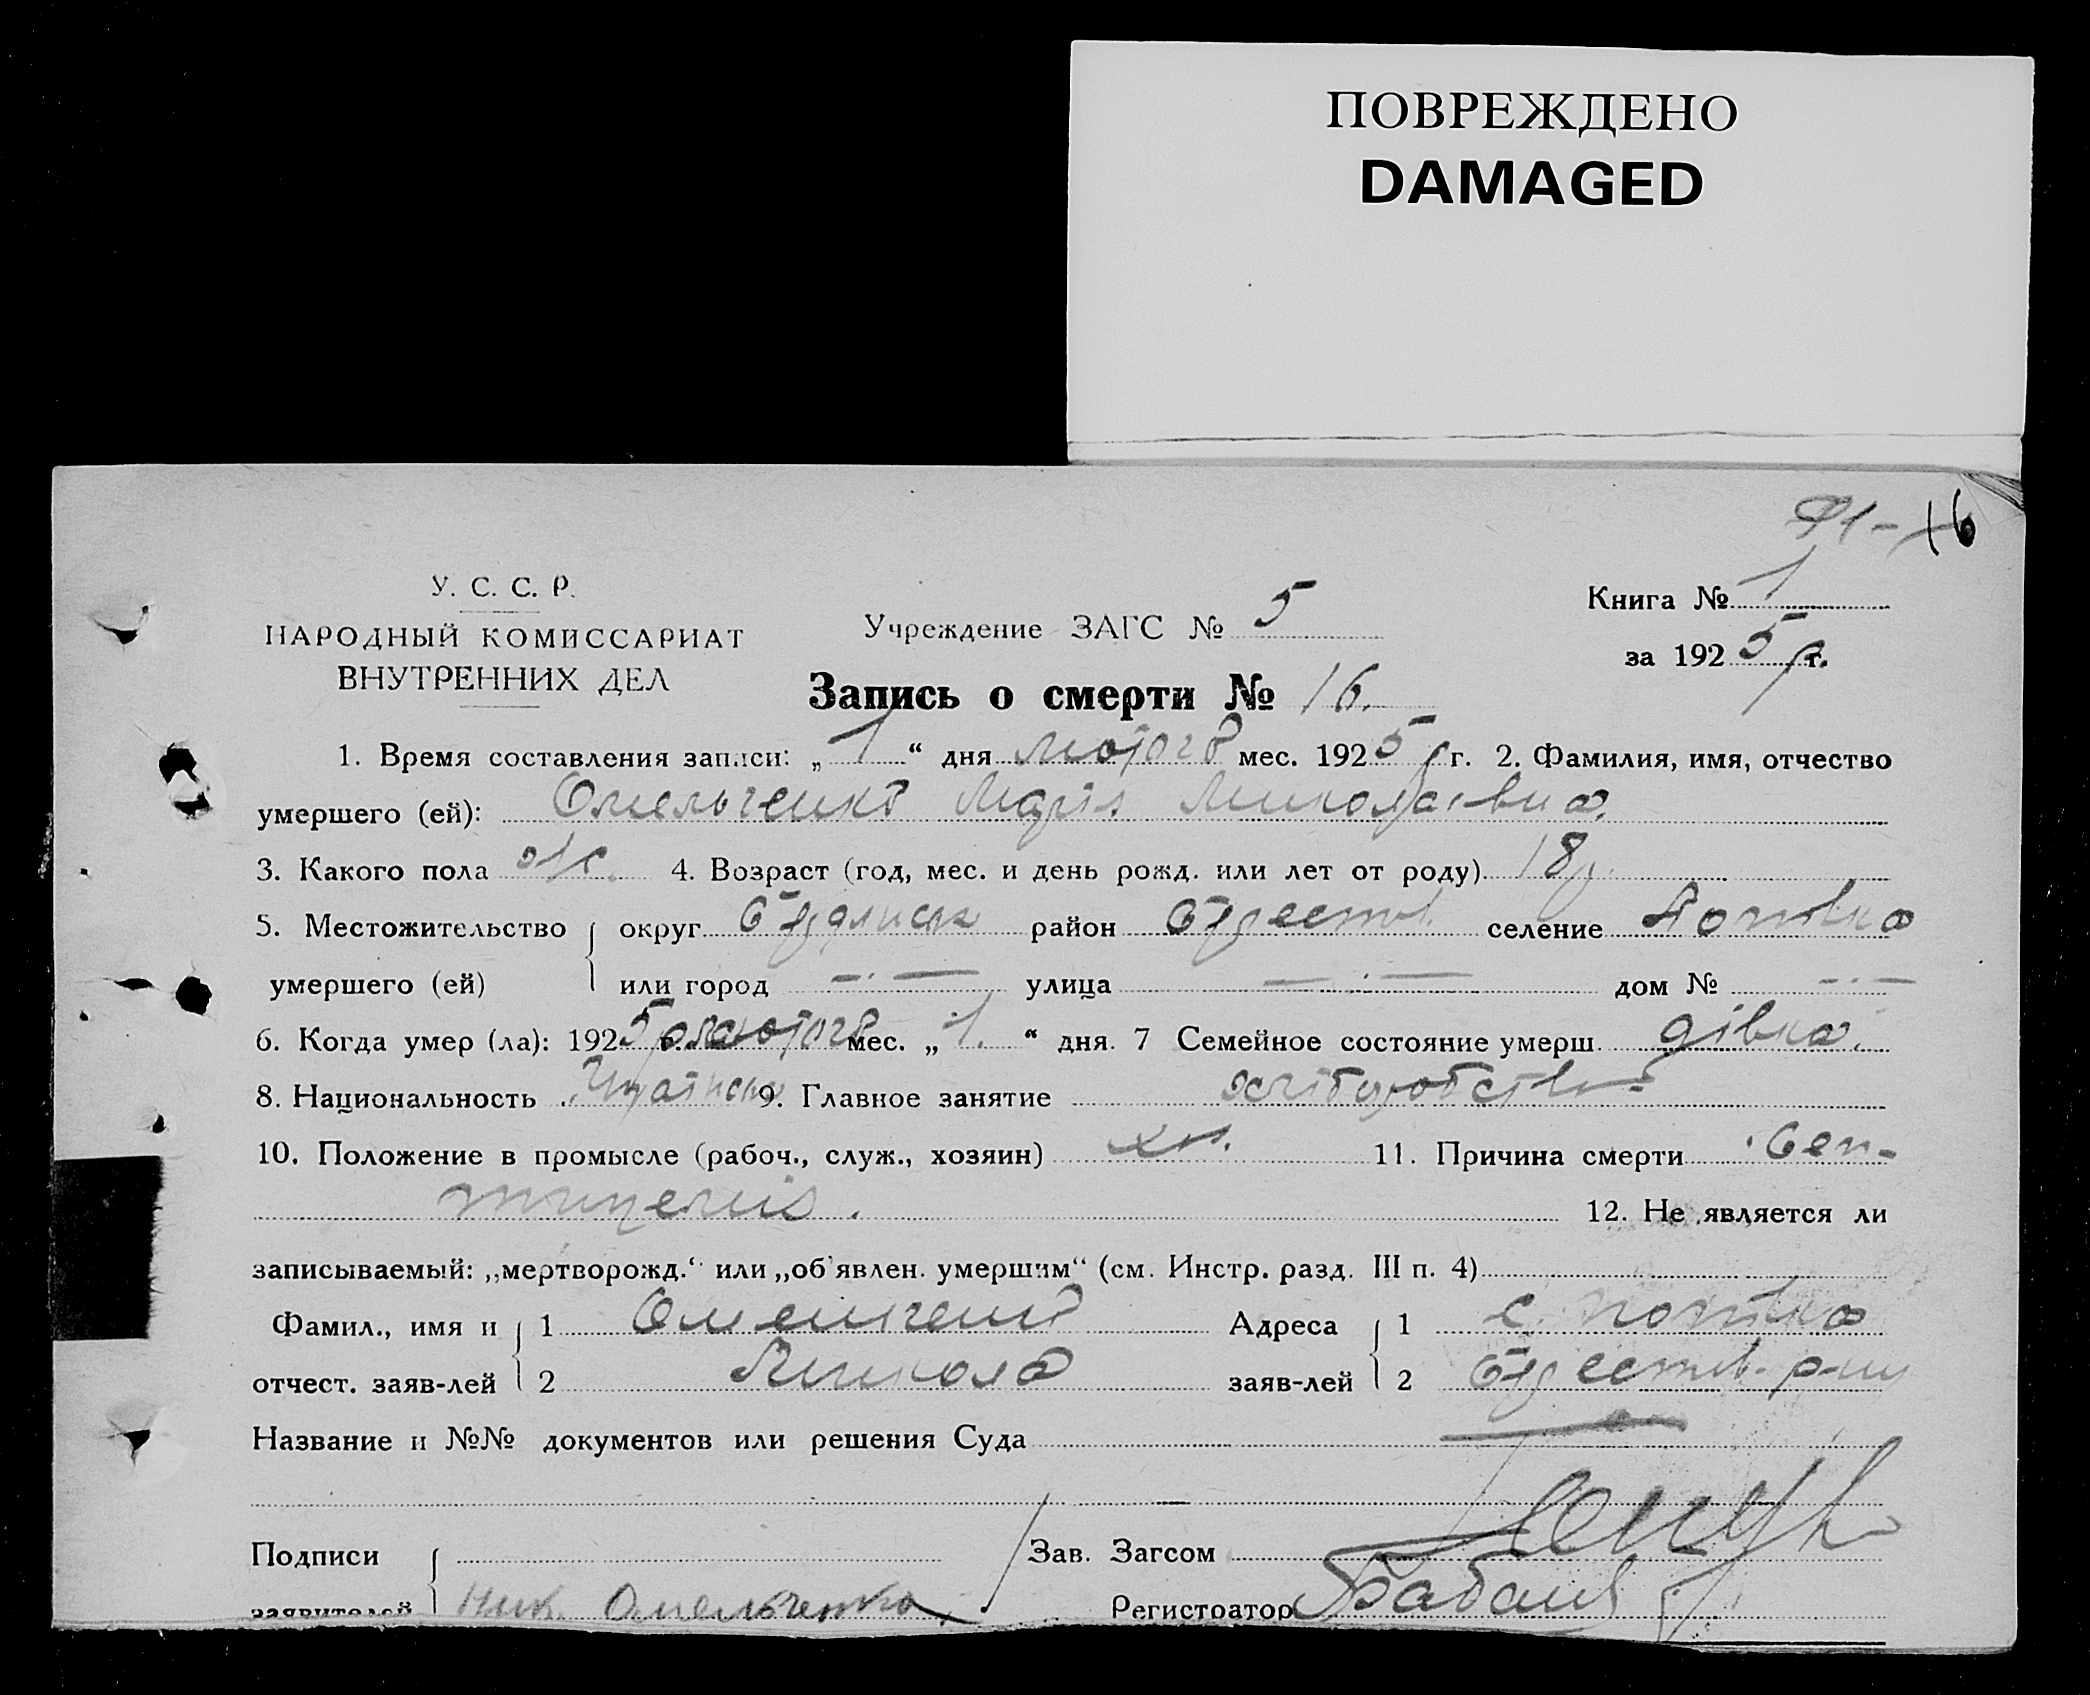 ПОВРЕЖДЕНО
DAMAGED
16
У. С. С. Р.
НАРОДНЫЙ КОМИССАРИАТ
ВНУТРЕННИХ ДЕЛ
Учреждение ЗАГС № 5
Книга № 1
за 1925 р. г.
Запись о смерти № 16.
1. Время составления записи: „ 1 “ дня лютого мес. 1925 г. 2. Фамилия, имя, отчество
умершего (ей): Омельченко Марія Миколаївна.
3. Какого пола ж. 4. Возраст (год, мес. и день рожд. или лет от роду) 18 р.
5. Местожительство округ район селение Попівка
умершего (ей) или город — . — улица — . — дом № — . —
6. Когда умер (ла): 1925 р. г. лютого мес. „ 1. “ дня. 7 Семейное состояние умерш. дівка.
8. Национальность Українка 9. Главное занятие хліборобство
10. Положение в промысле (рабоч., служ., хозяин) 11. Причина смерти
12. Не является ли
записываемый: „мертворожд.“ или „об'явлен. умершим“ (см. Инстр. разд. III п. 4)
Фамил., имя и 1 Омельченко Адреса 1 с. Попівка
отчест. заяв-лей 2 Микола заяв-лей 2 р-ну
Название и №№ документов или решения Суда —
Подписи Зав. Загсом
заявителей Ник. Омельченко Регистратор